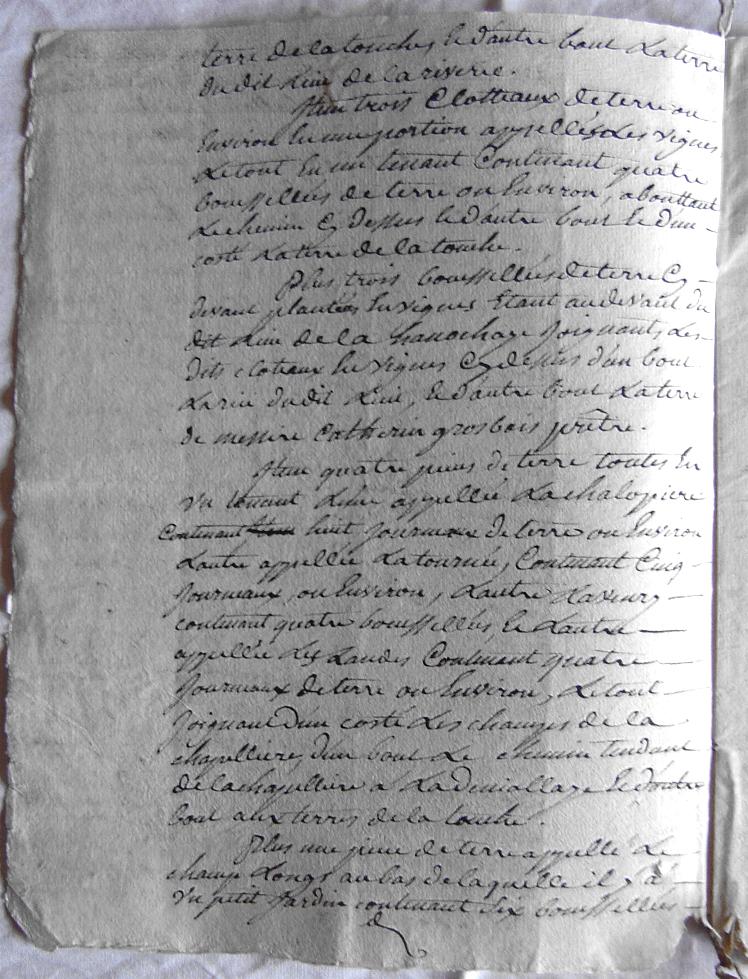 terre de la touches, & d'autre bout La terre
du dit Lieu de la riverie.
Item trois Clotteaux de terre ou
Environ En une portion appellées Les vignes
Le tout En un tenant Contenant quatre
boussellées de terre ou Environ, abouttant
Le chemin Cy dessus & d'autre bout & d'un
costé La terre de la touche.
Plus trois boussellées de terre Cy
devant plantées En vignes Etant au devant du
dit Lieu de la joignant Les
dits cloteaux En vignes Cy dessus d'un bout
La rüe du dit Lieu, & d'autre bout La terre
de messire Catherin grosbois prêtre.
Item quatre pieces de terre toutes En
un tenant Lune appellée La chaloppiere
Contenant huit journaux de terre ou Environ
Lautre appellée La tournée, Contenant Cinq
journaux, ou Environ, Lautre
contenant quatre boussellées, & Lautre
appellée Les Landes Contenant quatre
journaux de terre ou Environ, Le tout
joignant d'un costé Les champs de la
chapelliere, d'un bout Le chemin tendant
de la chapelliere a La & d'autre
bout aux terres de la touche.
Plus une piece de terre appellé Le
champ Longs au bas de laquelle il y a
un petit jardin contenant six boussellées